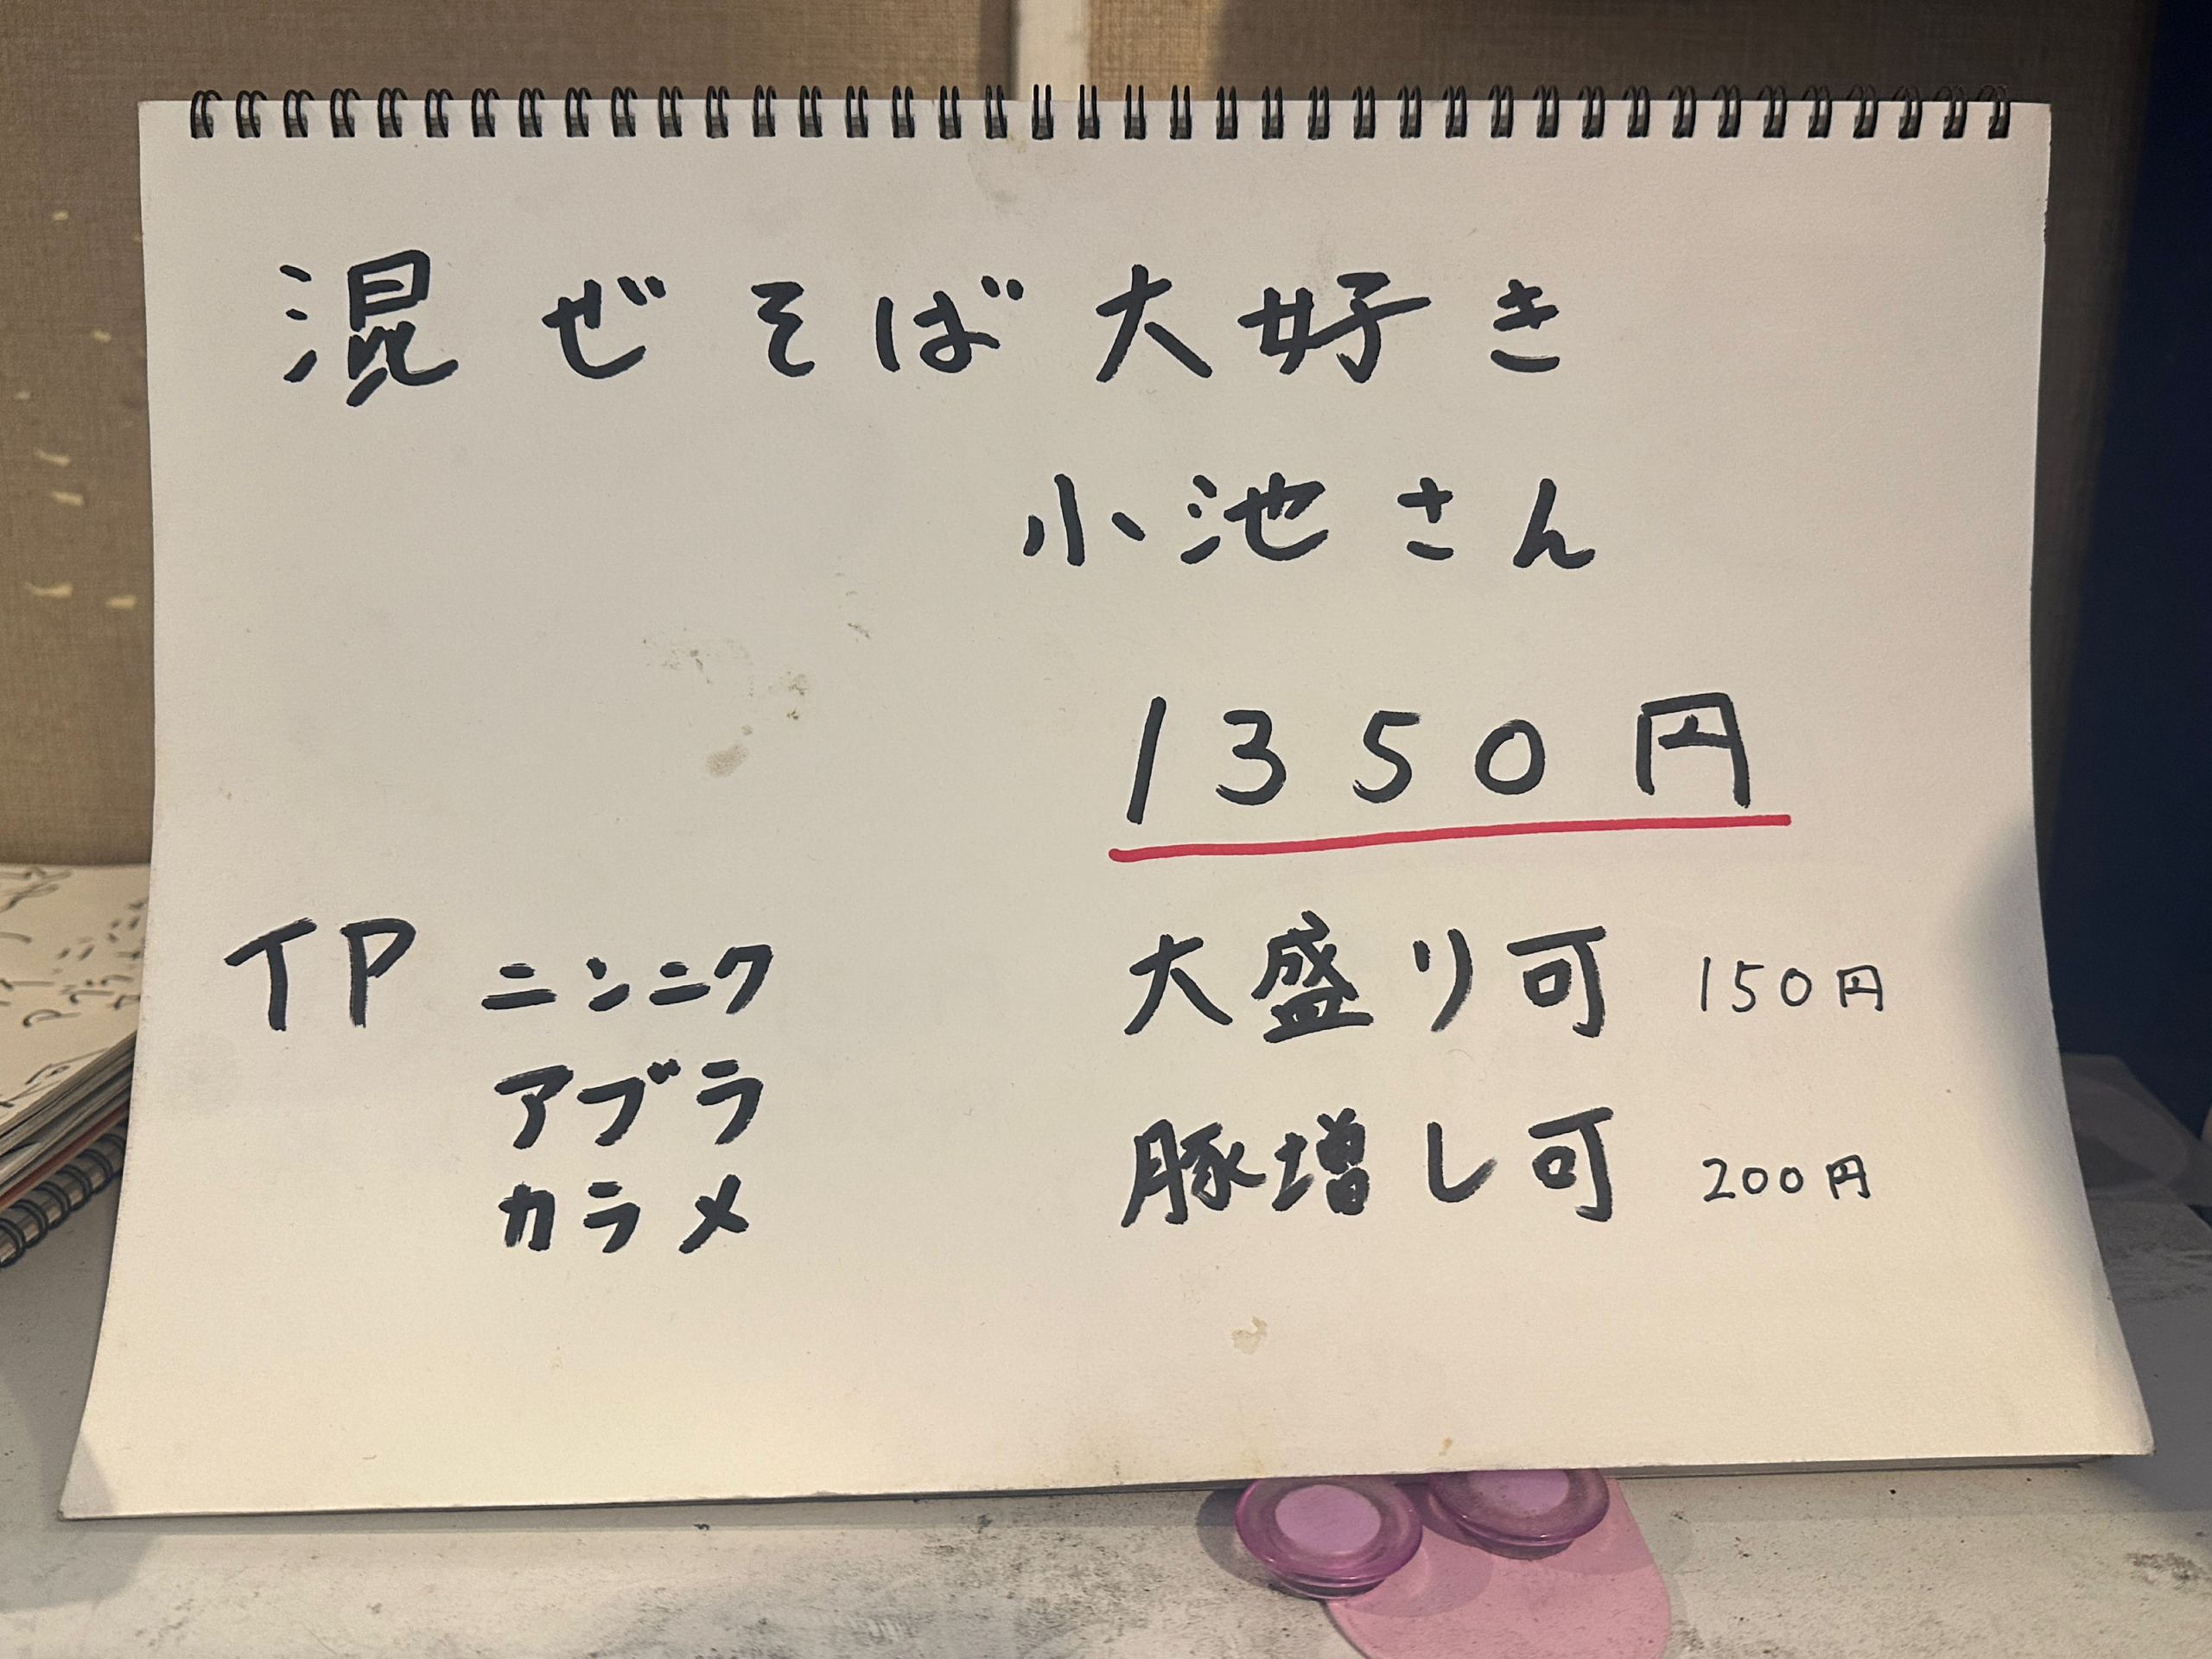 混ぜそば大好き
小池さん
1350円
TP ニンニク
アブラ
カラメ
大盛り可 150円
豚増し可 200円